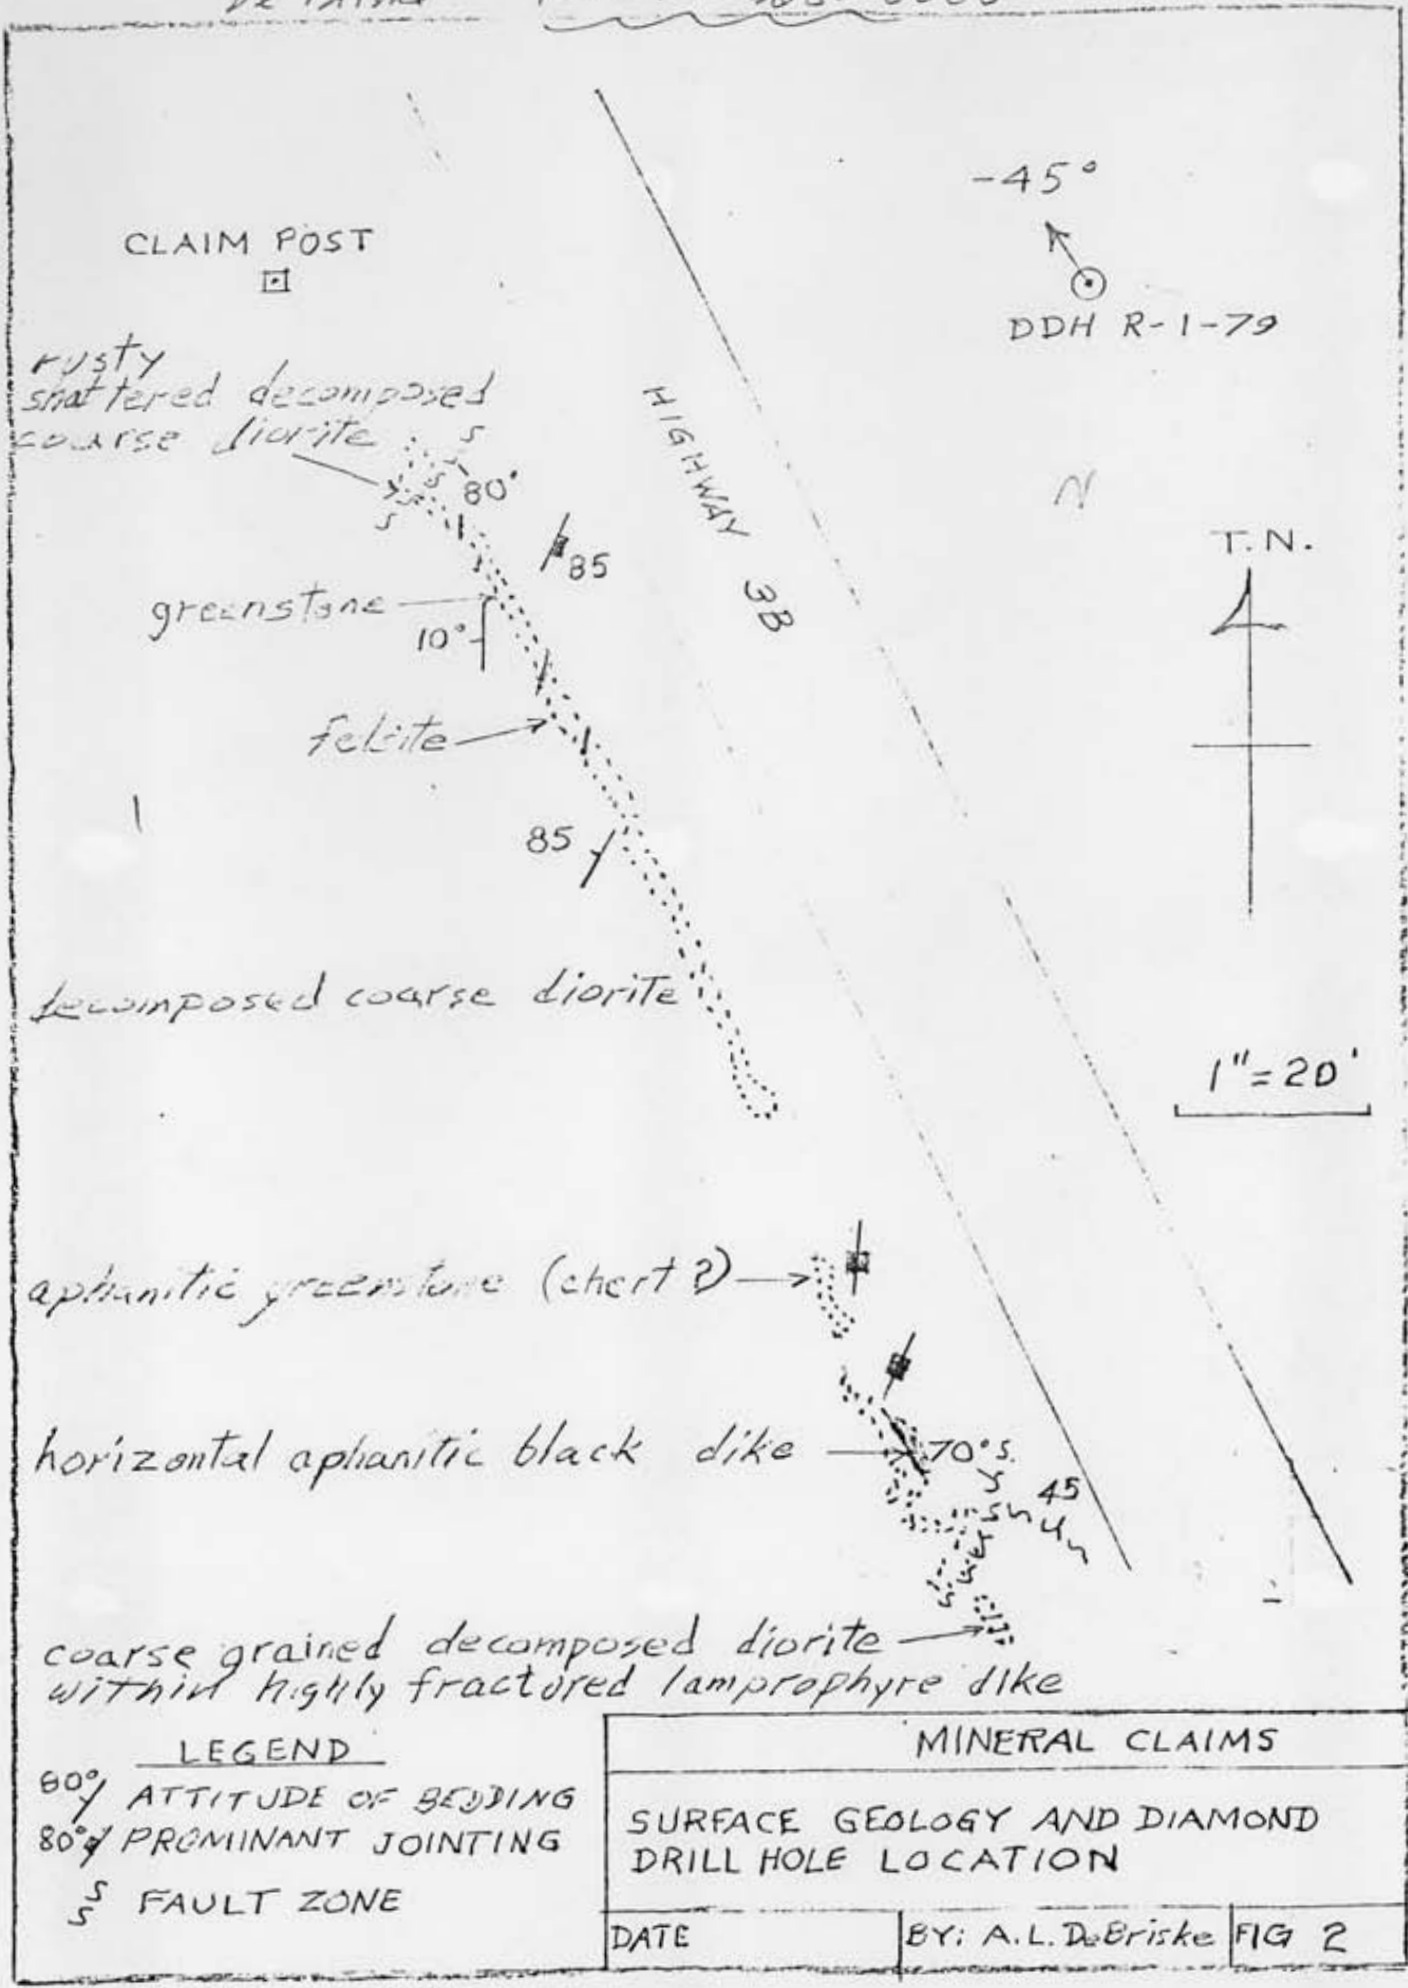 -45°
CLAIM POST
DDH R-1-79
rusty
shattered decomposed
coarse diorite
S
80°
S
S
S
HIGHWAY 3B
85
N
T.N.
greenstone
10°
felsite
85
decomposed coarse diorite
1"=20'
aphanitic greenstone (chert?)
horizontal aphanitic black dike
70° S.
45
coarse grained decomposed diorite
within highly fractured lamprophyre dike
LEGEND
80° ATTITUDE OF BEDDING
80° PROMINANT JOINTING
S
S FAULT ZONE
MINERAL CLAIMS
SURFACE GEOLOGY AND DIAMOND
DRILL HOLE LOCATION
DATE
BY: A.L. DeBriske
FIG 2